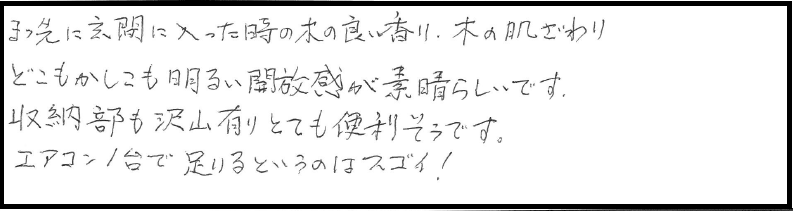 まっ先に玄関に入った時の木の良い香り.木の肌ざわり
どこもかしこも明るい開放感が素晴らしいです.
収納部も沢山有りとても便利そうです。
エアコン1台で足りるというのはスゴイ!